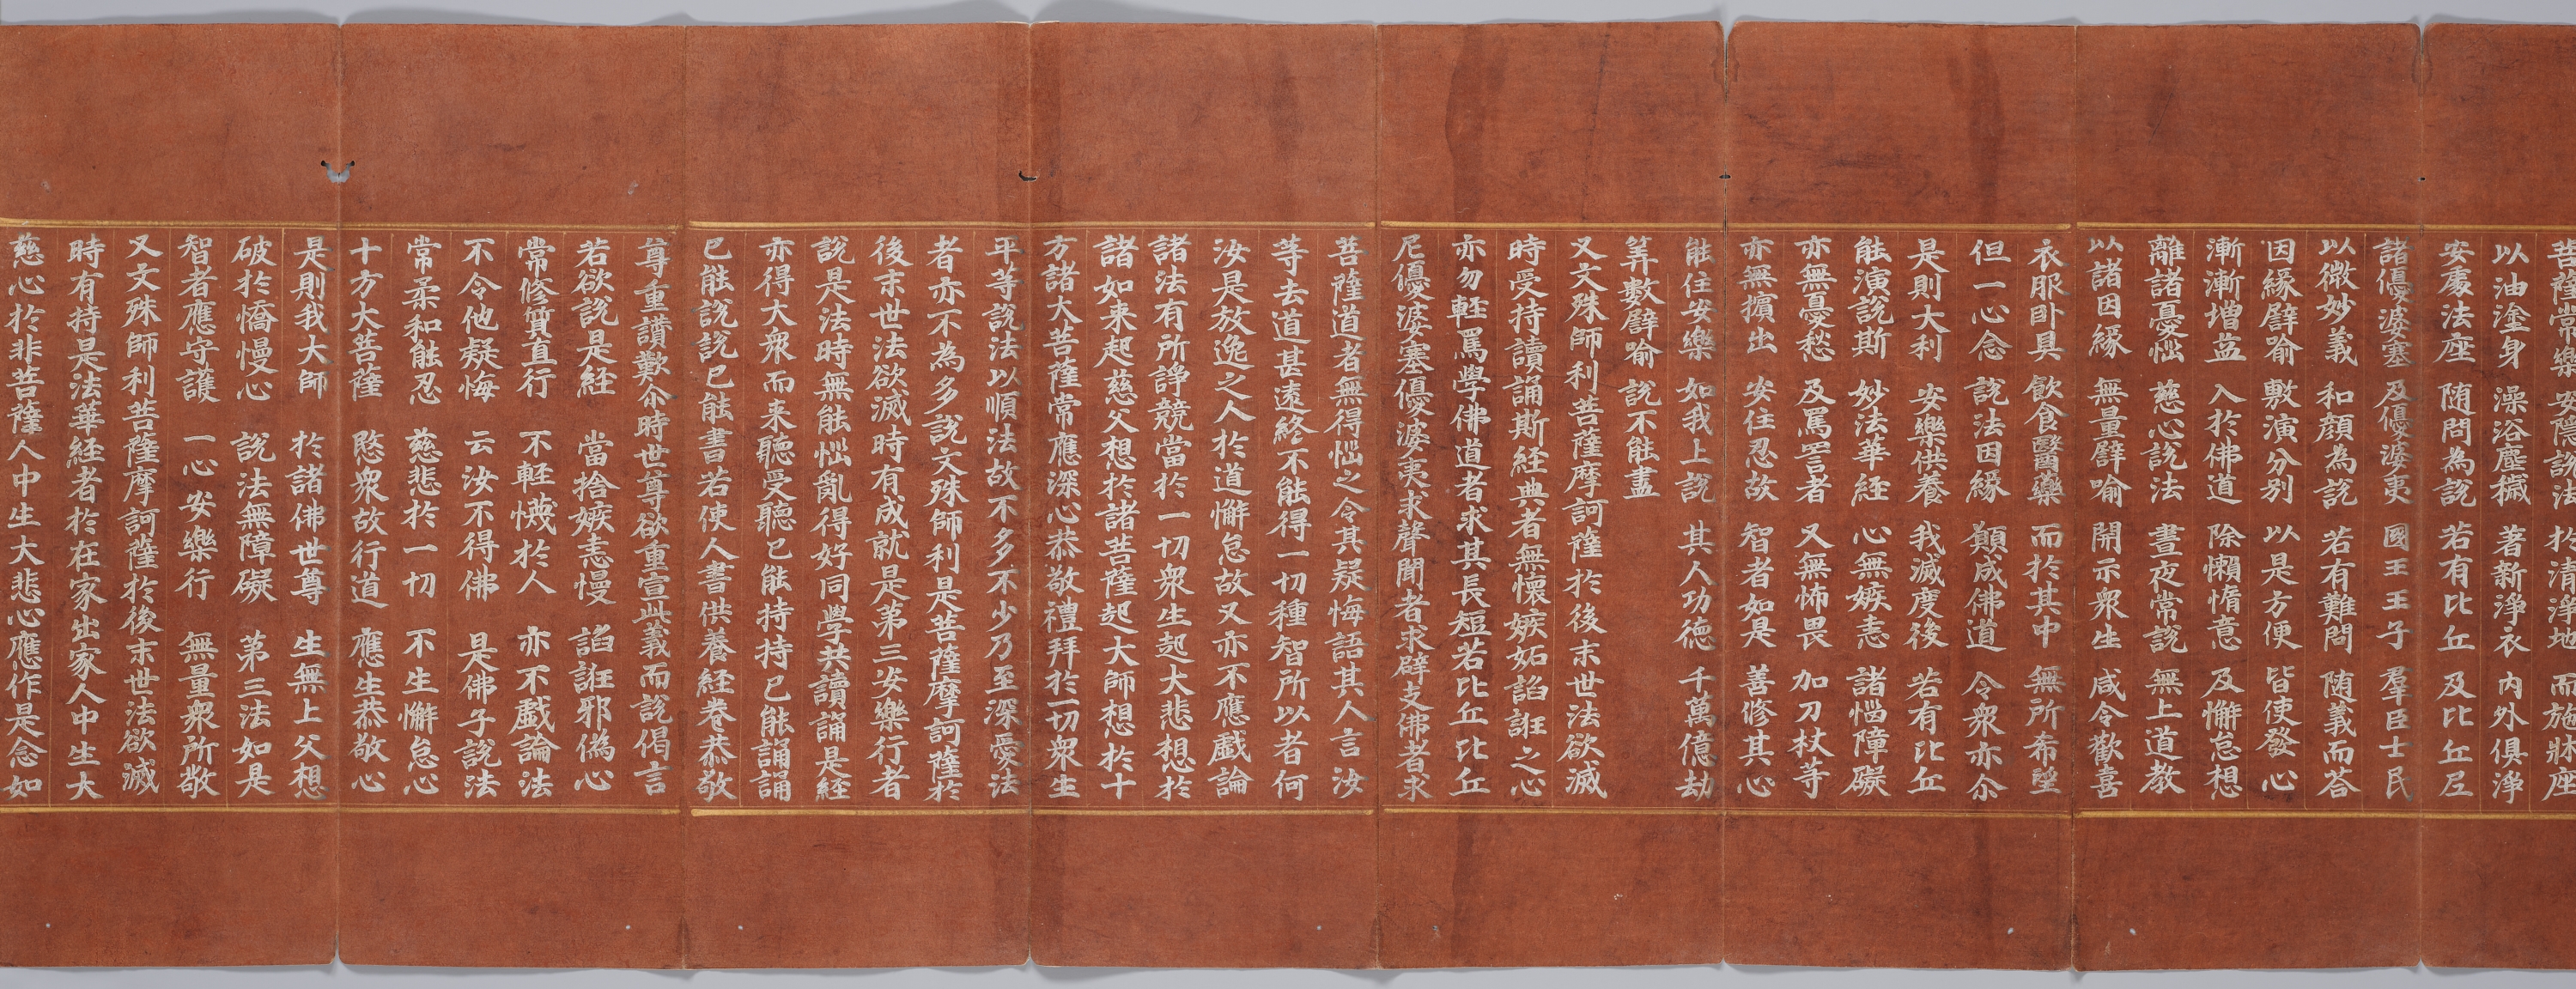 菩薩常樂 安隱說法 於清淨地 而施牀座
以油塗身 澡浴塵穢 著新淨衣 內外俱淨
安處法座 随問為說 若有比丘 及比丘尼
諸優婆塞 及優婆夷 國王王子 羣臣士民
以微妙義 和顔為說 若有難問 随義而荅
因緣譬喻 敷演分别 以是方便 皆使發心
漸漸增益 入於佛道 除懶惰意 及懈怠想
離諸憂惱 慈心說法 晝夜常說 無上道教
以諸因緣 無量譬喻 開示眾生 咸令歡喜
衣服卧具 飲食醫藥 而於其中 無所希望
但一心念 說法因緣 願成佛道 令衆亦尒
是則大利 安樂供養 我滅度後 若有比丘
能演說斯 妙法華経 心無嫉恚 諸惱障礙
亦無憂愁 及罵詈者 又無怖畏 加刀杖䓁
亦無擯出 安住忍故 智者如是 善修其心
能住安樂 如我上說 其人功德 千萬億劫
筭數譬喻 說不能盡
又文殊師利菩薩摩訶薩於後末世法欲滅
時受持讀誦斯経典者無懷嫉妬諂誑之心
亦勿輕罵學佛道者求其長短若比丘比丘
尼優婆塞優婆夷求聲聞者求辟支佛者求
菩薩道者無得惱之令其疑悔語其人言汝
䓁去道甚遠終不能得一切種智所以者何
汝是放逸之人於道懈怠故又亦不應戲論
諸法有所諍競當於一切衆生起大悲想於
諸如来起慈父想於諸菩薩起大師想於十
方諸大菩薩常應深心恭敬禮拜於一切衆生
平等說法以順法故不多不少乃至深愛法
者亦不為多說文殊師利是菩薩摩訶薩於
後末世法欲滅時有成就是第三安樂行者
說是法時無能惱亂得好同學共讀誦是経
亦得大衆而来聽受聽已能持持已能誦誦
已能說說已能書若使人書供養経卷恭敬
尊重讃歎尒時世尊欲重宣此義而說偈言
若欲說是経 當捨嫉恚慢 諂誑邪偽心
常修質直行 不輕懱於人 亦不戲論法
不令他疑悔 云汝不得佛 是佛子說法
常柔和能忍 慈悲於一切 不生懈怠心
十方大菩薩 愍衆故行道 應生恭敬心
是則我大師 於諸佛世尊 生無上父想
破於憍慢心 說法無障礙 第三法如是
智者應守護 一心安樂行 無量衆所敬
又文殊師利菩薩摩訶薩於後末世法欲滅
時有持是法華経者於在家出家人中生大
慈心於非菩薩人中生大悲心應作是念如